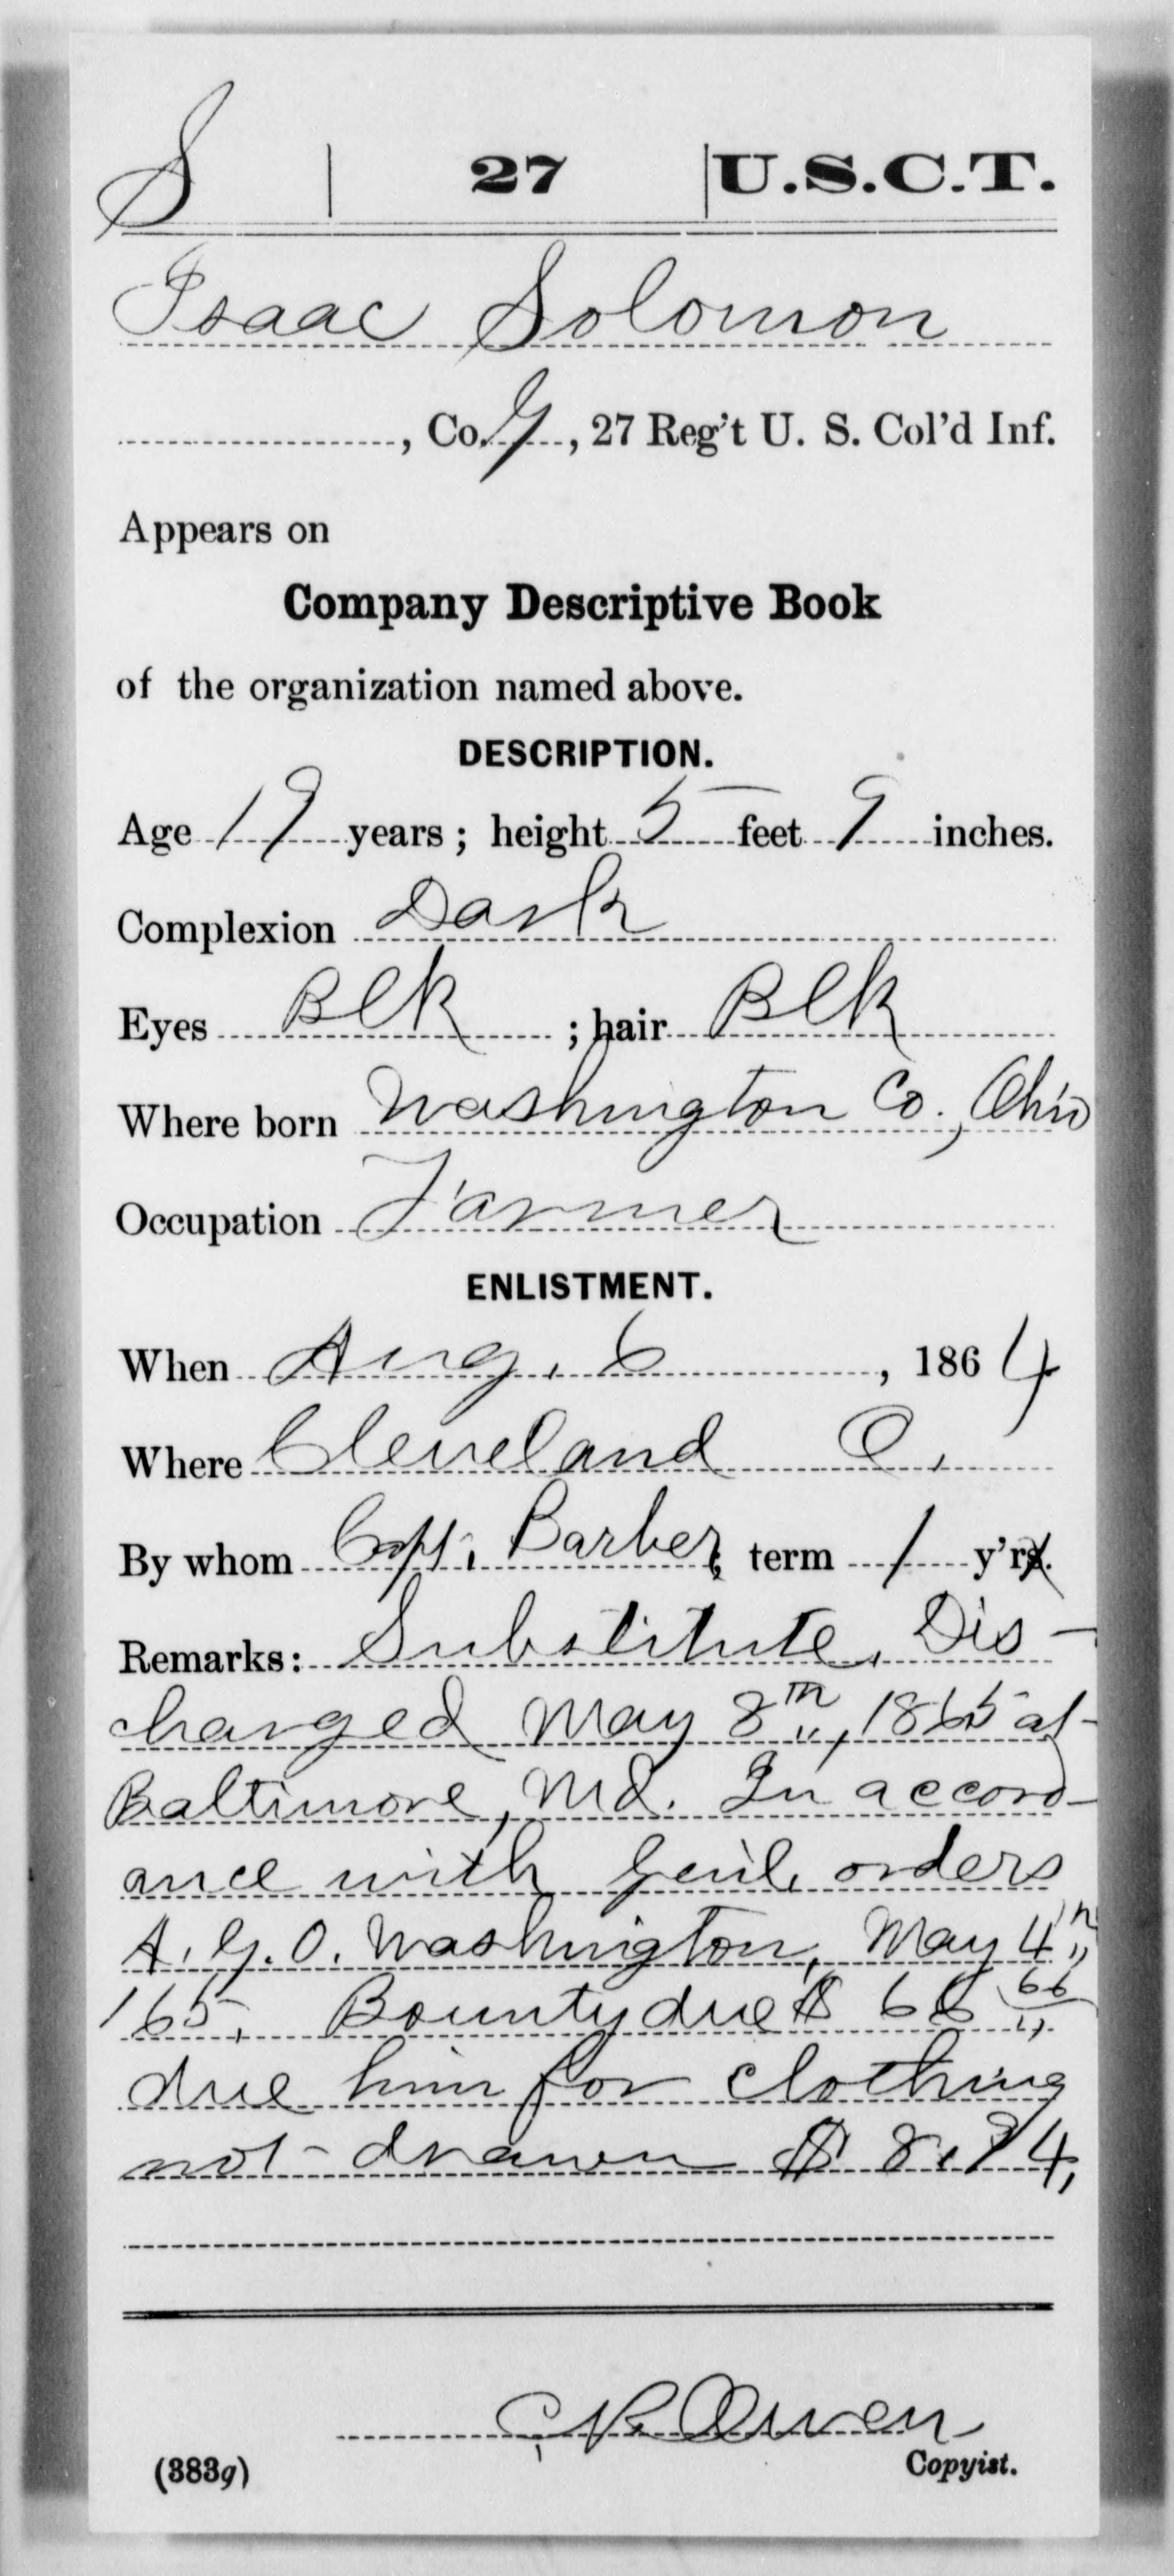 S | 27 | U.S.C.T.
Isaac Solomon
, Co. G, 27 Reg't U. S. Col'd Inf.
Appears on
Company Descriptive Book
of the organization named above.
DESCRIPTION.
Age 19 years; height 5 feet 9 inches.
Complexion Dark
Eyes Blk ; hair Blk
Where born Washington Co., Ohio
Occupation Farmer
ENLISTMENT.
When Aug. 6, 1864
Where Cleveland O.
By whom Capt. Barber; term 1 y'rs.
Remarks: Substitute. Dis-
charged May 8th, 1865 at
Baltimore, Md. In accord-
ance with Gen'l orders
A. G. O. Washington, May 4th
'65. Bounty due $ 66 66
due him for clothing
not drawn $ 8.94,
Owen
Copyist.
(383g)